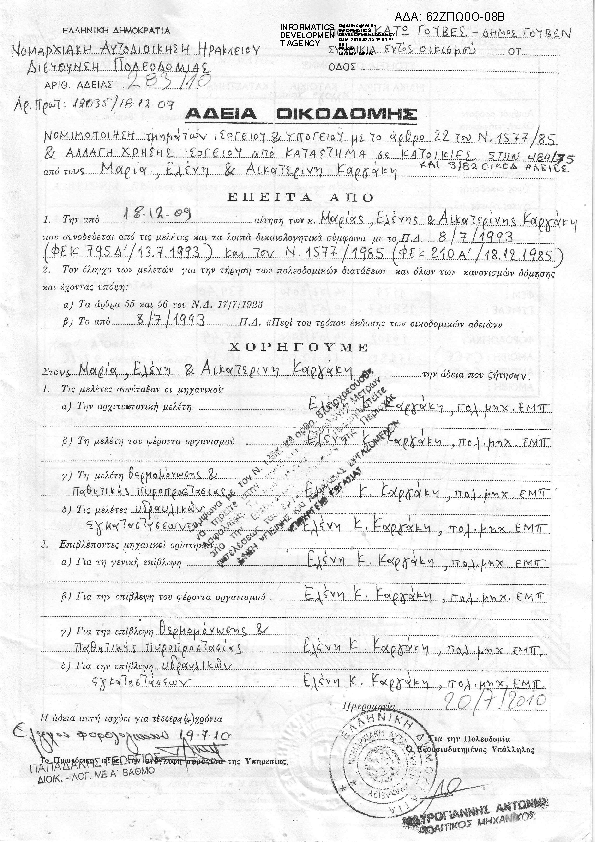 ΑΔΑ: 62ΖΠΩ00-08Β
INFORMATICS
DEVELOPMEN
T AGENCY
ΕΛΛΗΝΙΚΗ ΔΗΜΟΚΡΑΤΙΑ
ΚΑΤΩ ΓΟΥΒΕΣ - ΔΗΜΟΣ ΓΟΥΒΩΝ
ΝΟΜΑΡΧΙΑΚΗ ΑΥΤΟΔΙΟΙΚΗΣΗ ΗΡΑΚΛΕΙΟΥ
ΣΥΝΟΙΚΙΑ εντός οικισμού ΟΤ
ΔΙΕΥΘΥΝΣΗ ΠΟΛΕΟΔΟΜΙΑΣ
ΟΔΟΣ
ΑΡΙΘ. ΑΔΕΙΑΣ 283/10
Αρ. Πρωτ: 12035/18.12.09
ΑΔΕΙΑ ΟΙΚΟΔΟΜΗΣ
ΝΟΜΙΜΟΠΟΙΗΣΗ τμημάτων ισογείου & υπογείου με το άρθρο 22 του Ν. 1577/85
& ΑΛΛΑΓΗ ΧΡΗΣΗΣ ισογείου από ΚΑΤΑΣΤΗΜΑ σε ΚΑΤΟΙΚΙΕΣ, ΣΤΗΝ 489/75
ΚΑΙ 3/82 ΟΙΚΟΔ ΑΔΕΙΕΣ
από τους Μαρία, Ελένη & Αικατερίνη Καργάκη
ΕΠΕΙΤΑ ΑΠΟ
1. Την από 18.12.09 αίτηση των κ. Μαρίας, Ελένης & Αικατερίνης Καργάκη
που συνοδεύεται από τις μελέτες και τα λοιπά δικαιολογητικά σύμφωνα με το Π.Δ. 8/7/1993
(ΦΕΚ 795Δ'/13.7.1993) και τον Ν. 1577/1985 (ΦΕΚ 210Α'/18.12.1985)
2. Τον έλεγχο των μελετών για την τήρηση των πολεοδομικών διατάξεων και όλων των κανονισμών δόμησης
και έχοντας υπόψη:
α) Τα άρθρα 55 και 56 του Ν.Δ. 17/7/1923
β) Το από 8/7/1993 Π.Δ. «Περί του τρόπου έκδοσης των οικοδομικών αδειών»
ΧΟΡΗΓΟΥΜΕ
Στους Μαρία, Ελένη & Αικατερίνη Καργάκη την άδεια που ζήτησαν.
1. Τις μελέτες συνέταξαν οι μηχανικοί:
α) Την αρχιτεκτονική μελέτη Ελένη Κ. Καργάκη, πολ.μηχ. ΕΜΠ
β) Τη μελέτη του φέροντα οργανισμού Ελένη Κ. Καργάκη, πολ.μηχ. ΕΜΠ
γ) Τη μελέτη θερμομόνωσης &
Παθητικής Πυροπροστασίας Ελένη Κ. Καργάκη, πολ.μηχ. ΕΜΠ
δ) Τις μελέτες υδραυλικών
εγκαταστάσεων Ελένη Κ. Καργάκη, πολ.μηχ. ΕΜΠ
2. Επιβλέποντες μηχανικοί ορίστηκαν
α) Για τη γενική επίβλεψη Ελένη Κ. Καργάκη, πολ.μηχ. ΕΜΠ
β) Για την επίβλεψη του φέροντα οργανισμού Ελένη Κ. Καργάκη, πολ.μηχ. ΕΜΠ
γ) Για την επίβλεψη θερμομόνωσης &
Παθητικής Πυροπροστασίας Ελένη Κ. Καργάκη, πολ.μηχ. ΕΜΠ
δ) Για την επίβλεψη υδραυλικών
εγκαταστάσεων Ελένη Κ. Καργάκη, πολ.μηχ. ΕΜΠ
Ημερομηνία 20/7/2010
Η άδεια αυτή ισχύει για τέσσερα(4) χρόνια
19-7-10
Για την Πολεοδομία
Ο Εξουσιοδοτημένος Υπάλληλος
της Υπηρεσίας,
ΔΙΟΙΚ. - ΛΟΓ. ΜΕ Α' ΒΑΘΜΟ
ΜΑΥΡΟΓΙΑΝΝΗΣ ΑΝΤΩΝΗΣ
ΠΟΛΙΤΙΚΟΣ ΜΗΧΑΝΙΚΟΣ